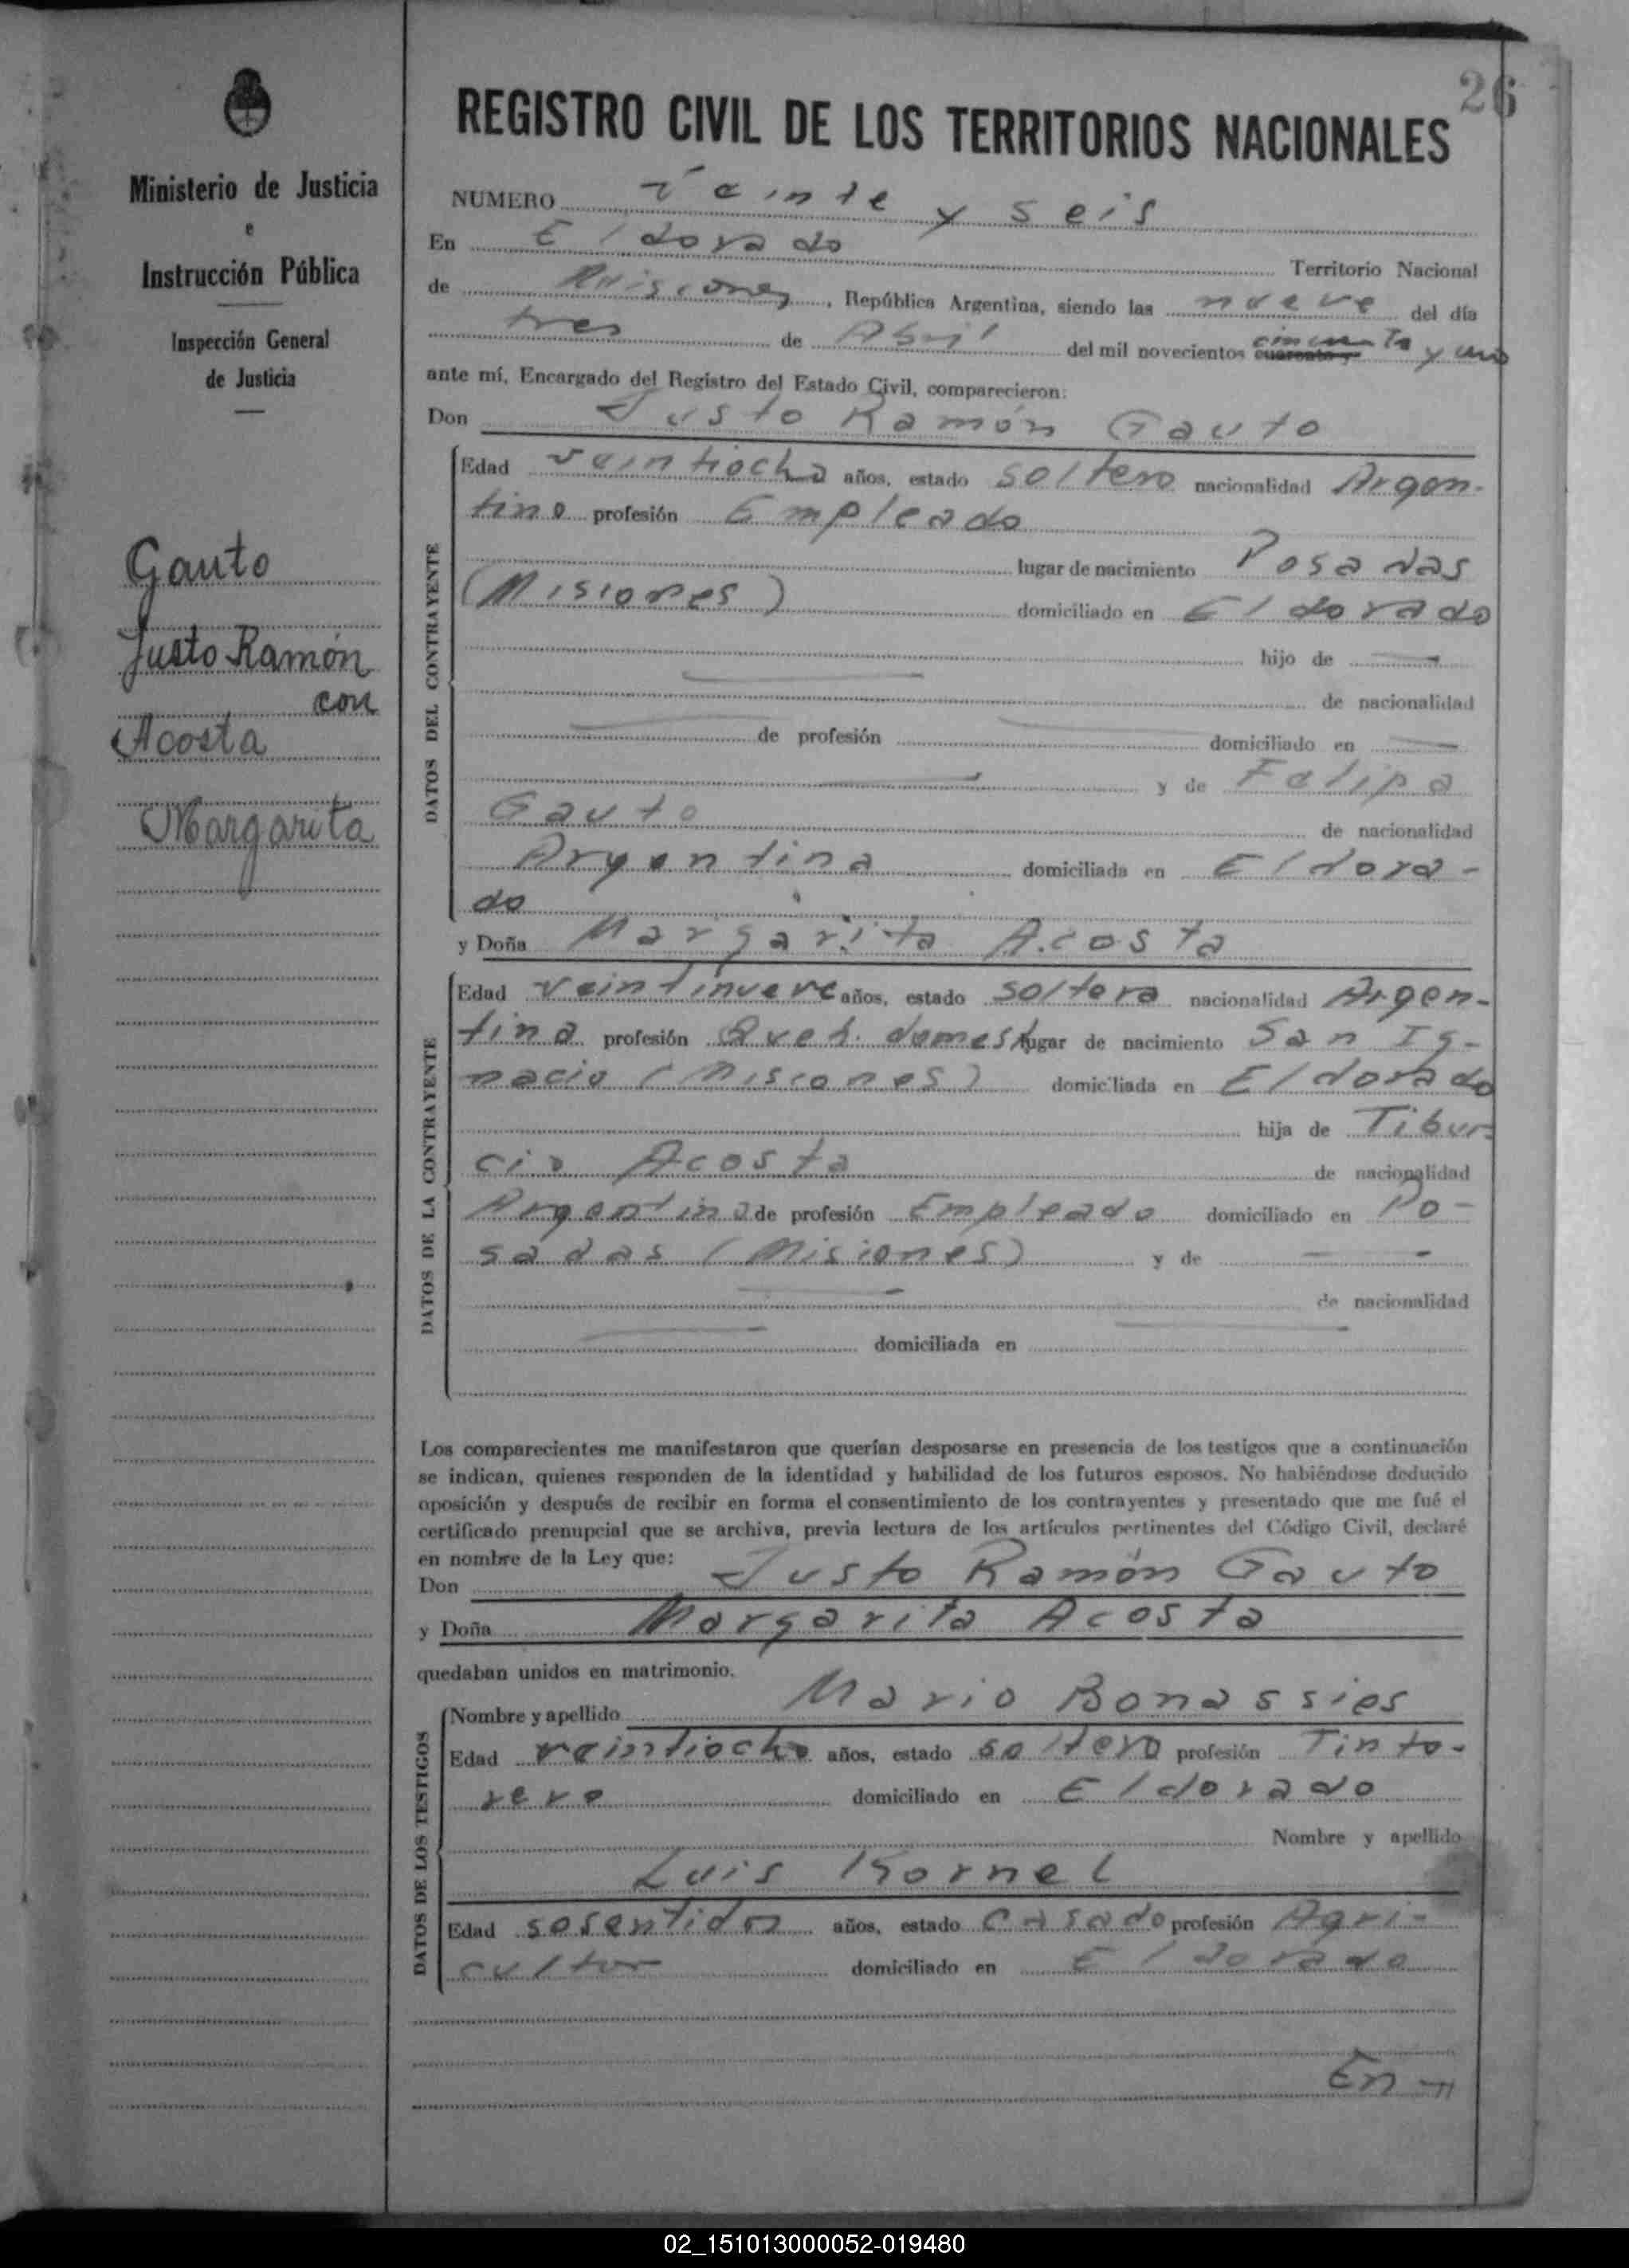 26
Ministerio de Justicia
e
Instrucción Pública
Inspección General
de Justicia
Gauto
Justo Ramón
con
Acosta
Margarita
REGISTRO CIVIL DE LOS TERRITORIOS NACIONALES
NUMERO veinte y seis
En Eldorado Territorio Nacional
de Misiones, República Argentina, siendo las nueve del día
tres de Abril del mil novecientos cuarenta y cincuenta y uno
ante mí, Encargado del Registro del Estado Civil, comparecieron:
Don Justo Ramón Gauto
DATOS DEL CONTRAYENTE
Edad veintiocho años, estado soltero nacionalidad Argen-
tino profesión Empleado
lugar de nacimiento Posadas
(Misiones) domiciliado en Eldorado
hijo de —
de nacionalidad
de profesión domiciliado en —
y de Felipa
Gauto de nacionalidad
Argentina domiciliada en Eldora-
do
y Doña Margarita Acosta
DATOS DE LA CONTRAYENTE
Edad veintinueve años, estado soltera nacionalidad Argen-
tina profesión Queh. domest. lugar de nacimiento San Ig-
nacio (Misiones) domiciliada en Eldorado
hija de Tibur-
cio Acosta de nacionalidad
Argentina de profesión Empleado domiciliado en Po-
sadas (Misiones) y de —
de nacionalidad
domiciliada en
Los comparecientes me manifestaron que querían desposarse en presencia de los testigos que a continuación
se indican, quienes responden de la identidad y habilidad de los futuros esposos. No habiéndose deducido
oposición y después de recibir en forma el consentimiento de los contrayentes y presentado que me fué el
certificado prenupcial que se archiva, previa lectura de los artículos pertinentes del Código Civil, declaré
en nombre de la Ley que:
Don Justo Ramón Gauto
y Doña Margarita Acosta
quedaban unidos en matrimonio.
DATOS DE LOS TESTIGOS
Nombre y apellido Mario Bonassies
Edad veintiocho años, estado soltero profesión Tinto-
rero domiciliado en Eldorado
Nombre y apellido
Luis Kornel
Edad sesentidos años, estado casado profesión Agri-
cultor domiciliado en Eldorado
En -
02_151013000052-019480